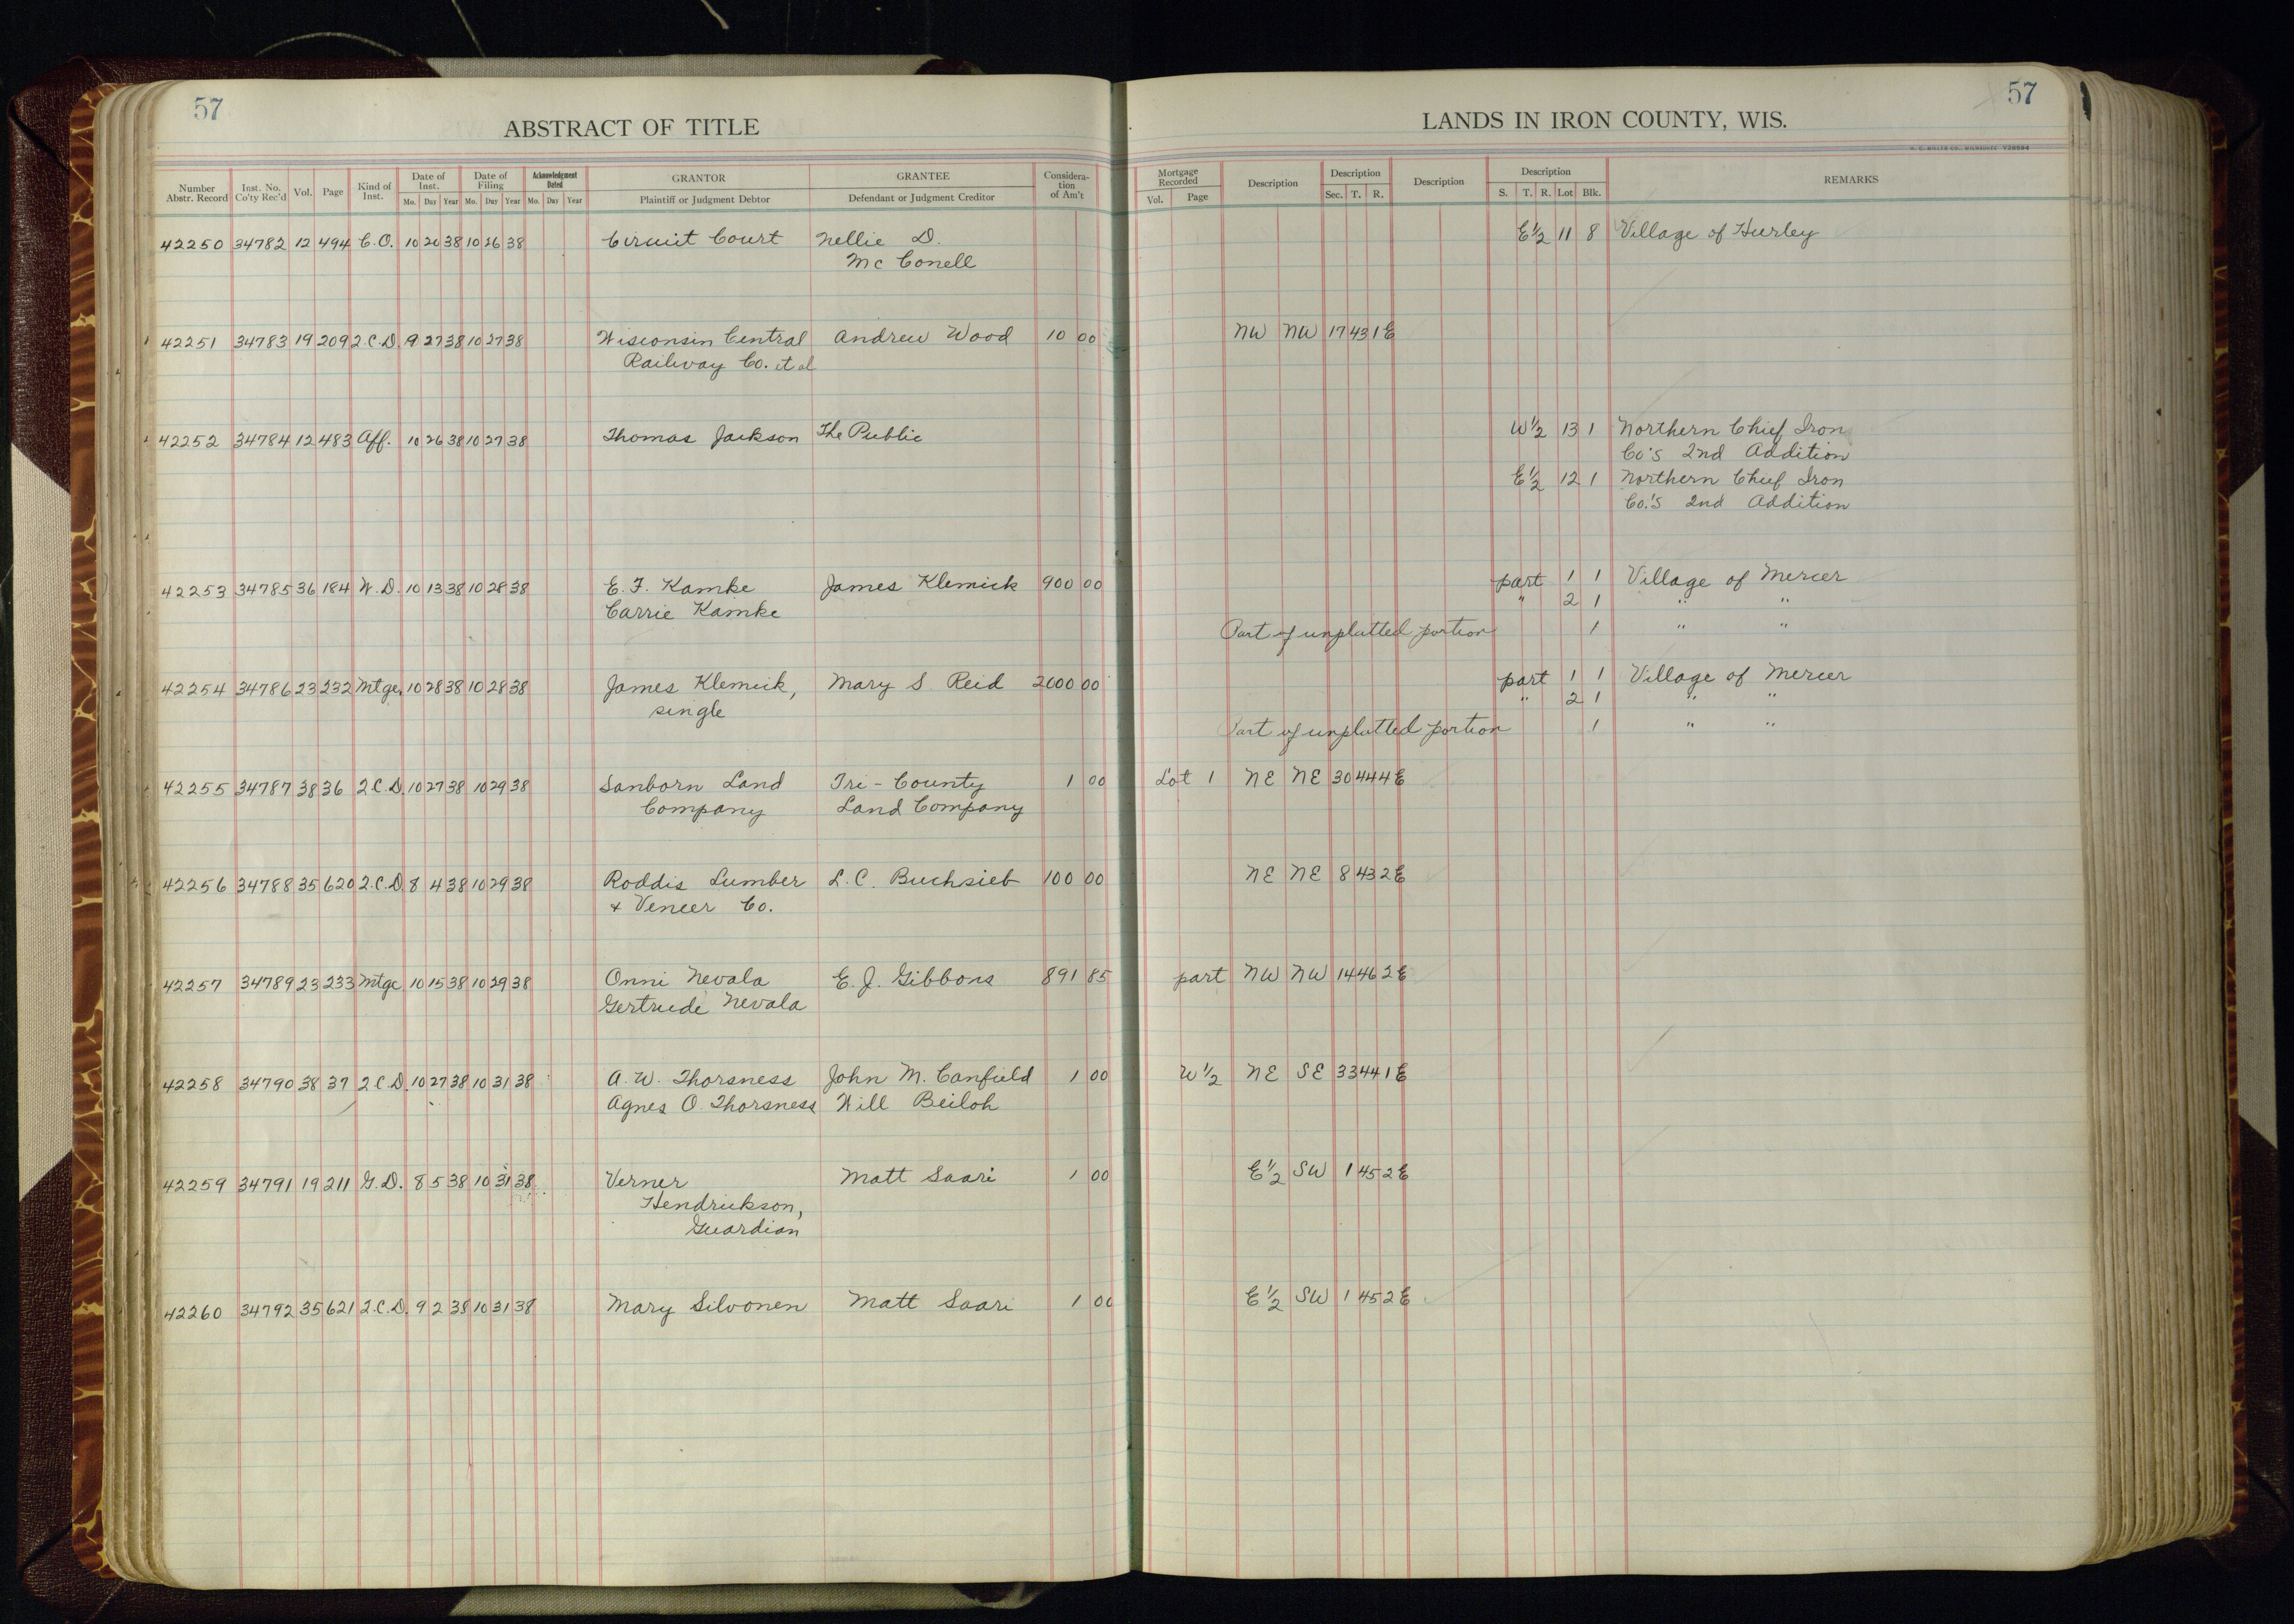 57
57
ABSTRACT OF TITLE
LANDS IN IRON COUNTY, WIS.
H. C. MILLER CO., MILWAUKEE
Number Abstr. Record Inst. No. Co'ty Rec'd Vol. Page Kind of Inst. Date of Inst. Mo. Day Year Date of Filing Mo. Day Year Acknowledgment Dated Mo. Day Year GRANTOR Plaintiff or Judgment Debtor GRANTEE Defendant or Judgment Creditor Considera- tion of Am't Mortgage Recorded Vol. Page Description Description Sec. T. R. Description Description S. T. R. Lot Blk. REMARKS
42250 34782 12 494 C.O. 10 26 38 10 26 38 Circuit Court Nellie D. E½ 11 8 Village of Hurley
Mc Conell
42251 34783 19 209 2.C.D. 9 27 38 10 27 38 Wisconsin Central Andrew Wood 10 00 NW NW 17 43 1E
Railway Co. et al
42252 34784 12 483 Aff. 10 26 38 10 27 38 Thomas Jackson The Public W½ 13 1 Northern Chief Iron
Co's 2nd Addition
E½ 12 1 Northern Chief Iron
Co.'s 2nd Addition
42253 34785 36 184 W.D. 10 13 38 10 28 38 E. F. Kamke James Klemick 900 00 part 1 1 Village of Mercer
Carrie Kamke " 2 1 " "
Part of unplatted portion 1 " "
42254 34786 23 232 Mtge. 10 28 38 10 28 38 James Klemick, Mary S. Reid 2000 00 part 1 1 Village of Mercer
single " 2 1 " "
Part of unplatted portion 1 " "
42255 34787 38 36 2.C.D. 10 27 38 10 29 38 Sanborn Land Tri-County 1 00 Lot 1 NE NE 30 44 4E
Company Land Company
42256 34788 35 620 2.C.D. 8 4 38 10 29 38 Roddis Lumber L.C. Buchsieb 100 00 NE NE 8 43 2E
+ Veneer Co.
42257 34789 23 233 Mtge 10 15 38 10 29 38 Onni Nevala E. J. Gibbons 891 85 part NW NW 14 46 2E
Gertrude Nevala
42258 34790 38 37 2.C.D. 10 27 38 10 31 38 A. W. Thorsness John M. Canfield 1 00 W½ NE SE 33 44 1E
Agnes O. Thorsness Will Beiloh
42259 34791 19 211 G.D. 8 5 38 10 31 38 Verner Matt Saari 1 00 E½ SW 1 45 2E
Hendrickson,
Guardian
42260 34792 35 621 2.C.D. 9 2 38 10 31 38 Mary Silvonen Matt Saari 1 00 E½ SW 1 45 2E